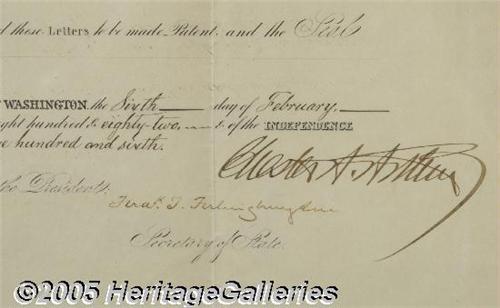 d these Letters to be made Patent, and the Seal
WASHINGTON, the Sixth day of February,
ght hundred & eighty-two, & of the INDEPENDENCE
e hundred and sixth.
Chester A. Arthur
the President:
Fredk. T. Frelinghuysen
Secretary of State.
©2005 HeritageGalleries